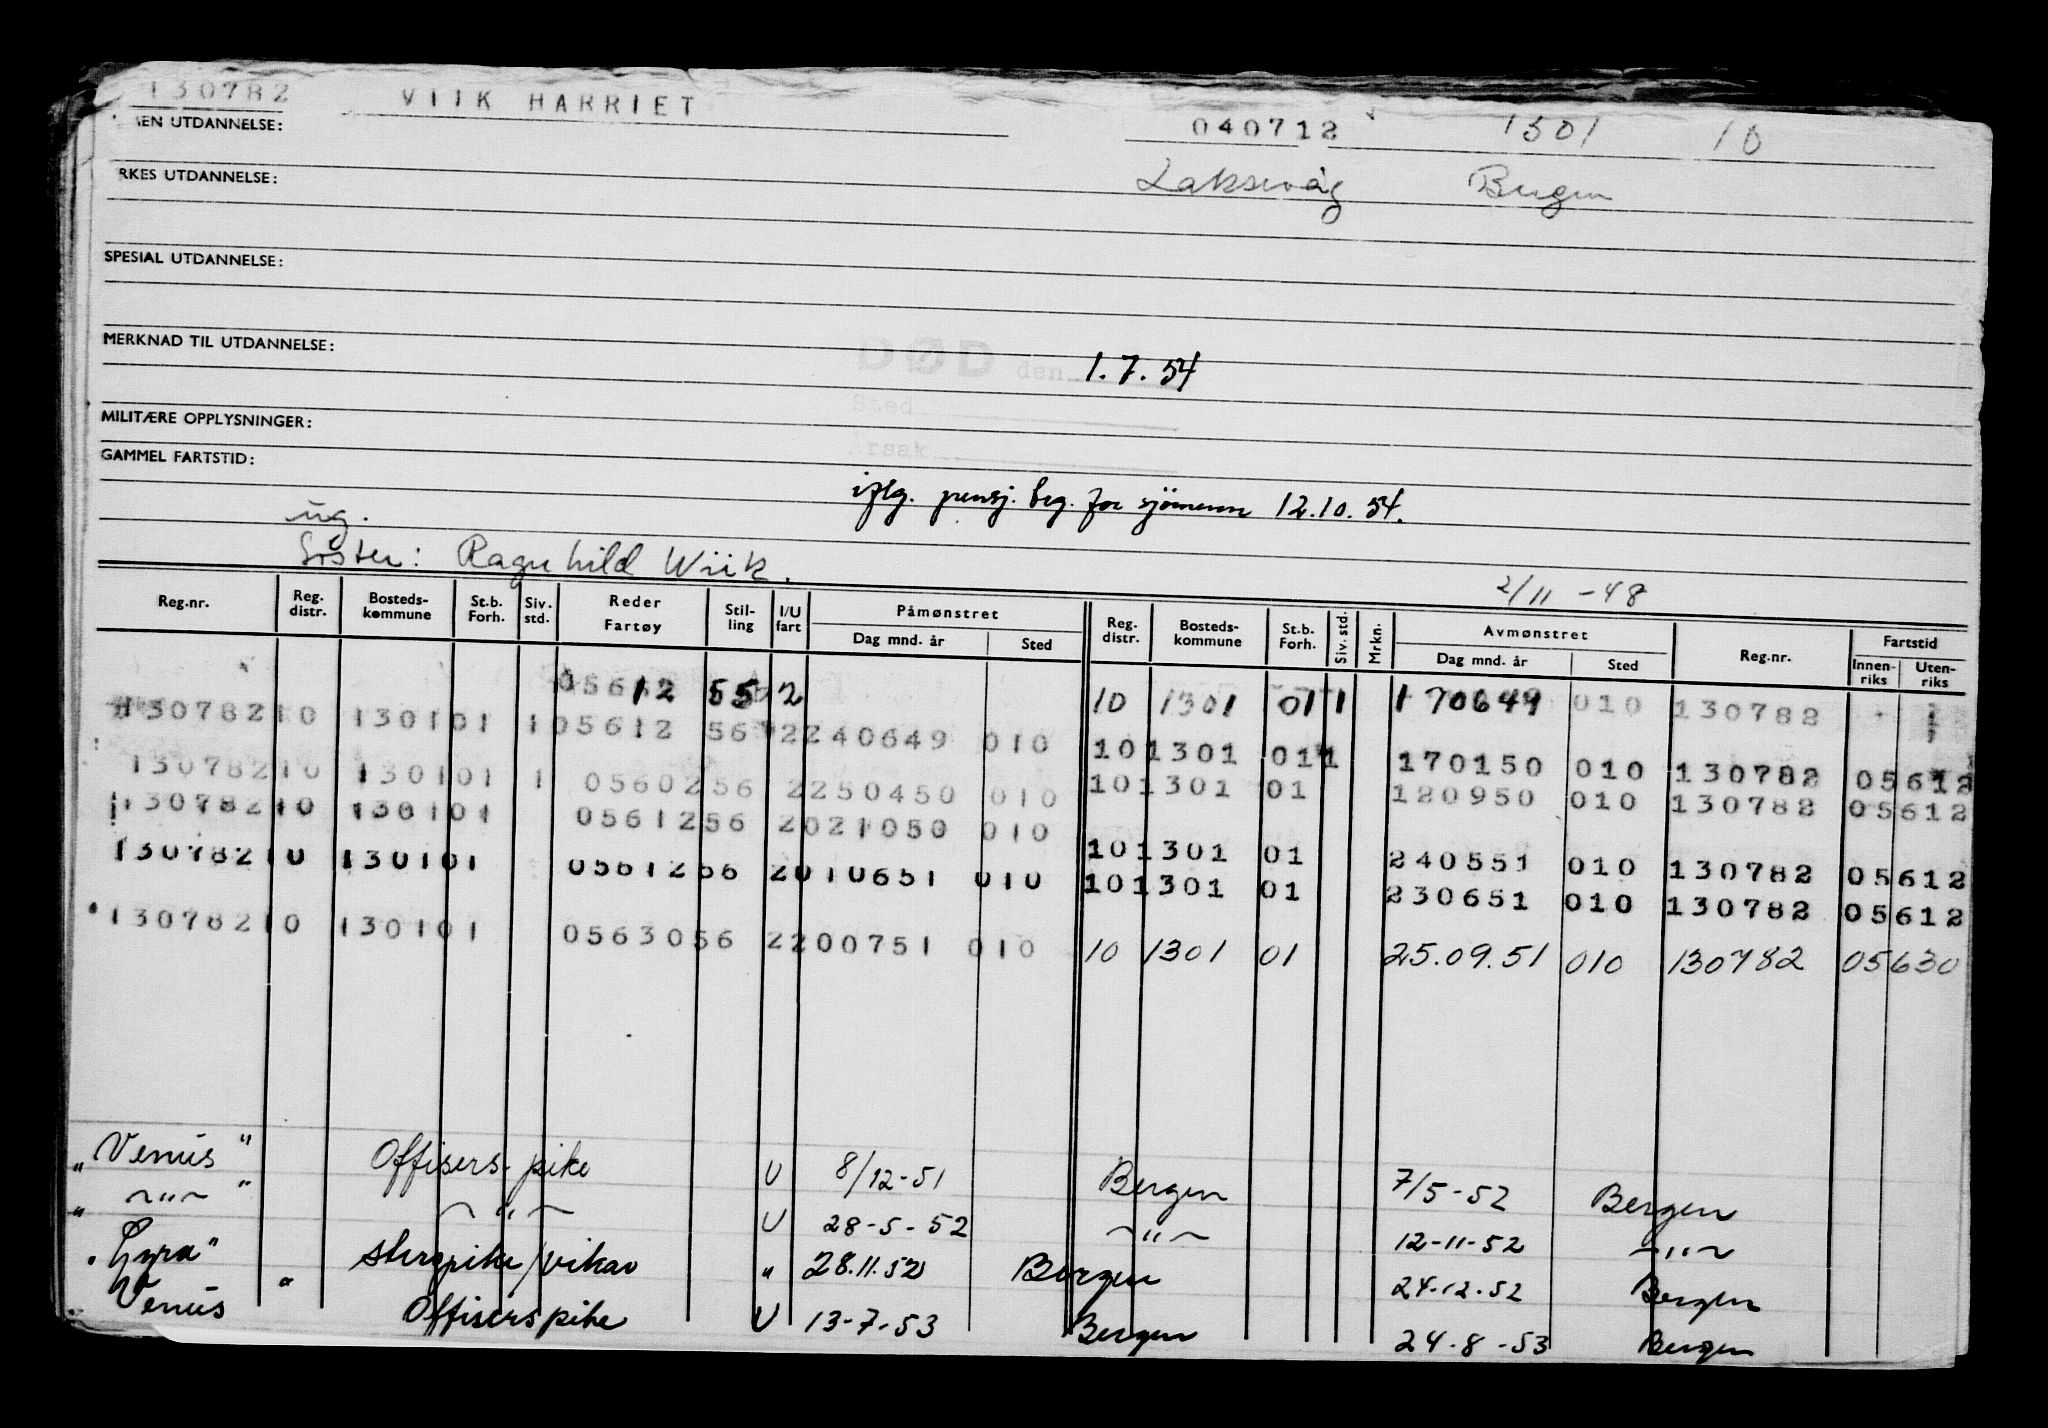 130782 VIIK HARRIET 040712 1301 10
MEN UTDANNELSE:
RKES UTDANNELSE: Laksevåg Bergen
SPESIAL UTDANNELSE:
MERKNAD TIL UTDANNELSE:
DØD den 1.7.54
Sted
MILITÆRE OPPLYSNINGER:
Årsak
GAMMEL FARTSTID:
iflg. pensj. beg. for sjömenn 12.10.54.
ug.
Søster: Ragnhild Wiik.
2/11 -48
Reg.nr. Reg. distr. Bosteds- kommune St.b. Forh. Siv. std. Reder Fartøy Stil- ling I/U fart Påmønstret Dag mnd. år Sted Reg. distr. Bosteds- kommune St.b. Forh. Siv. std. Mrkn. Avmønstret Dag mnd. år Sted Reg.nr. Fartstid Innen- riks Uten- riks
05612 55 2 10 1301 01 1 170649 010 130782
13078210 130101 105612 56 2240649 010 101301 01 1 170150 010 130782 05612
13078210 130101 1 0560256 2250450 010 101301 01 120950 010 130782 05612
13078210 130101 0561256 2021050 010 101301 01 240551 010 130782 05612
13078210 130101 0561256 2010651 010 101301 01 230651 010 130782 05612
13078210 130101 0563056 2200751 010 10 1301 01 25.09.51 010 130782 05630
"Venus" Offisers-pike U 8/12-51 Bergen 7/5-52 Bergen
" ~"~ " ~ " ~ U 28-5-52 ~"~ 12-11-52 ~"~
"Lyra" /vikar " 28.11.52 Bergen 24.12.52 Bergen
Venus " Offiserspike U 13-7-53 Bergen 24-8-53 Bergen